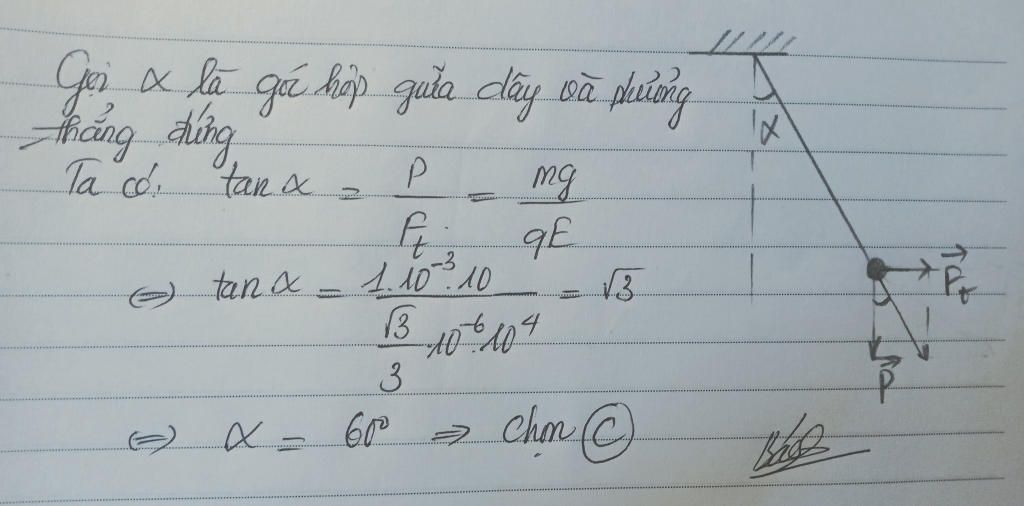 Gọi α là góc hợp giữa dây và phương
thẳng đứng
Ta có: tan α = P / Ft = mg / qE
⇔ tan α = 1.10⁻³.10 / (√3/3 .10⁻⁶.10⁴) = √3
⇔ α = 60° ⇒ Chọn C
α
F⃗t
P⃗